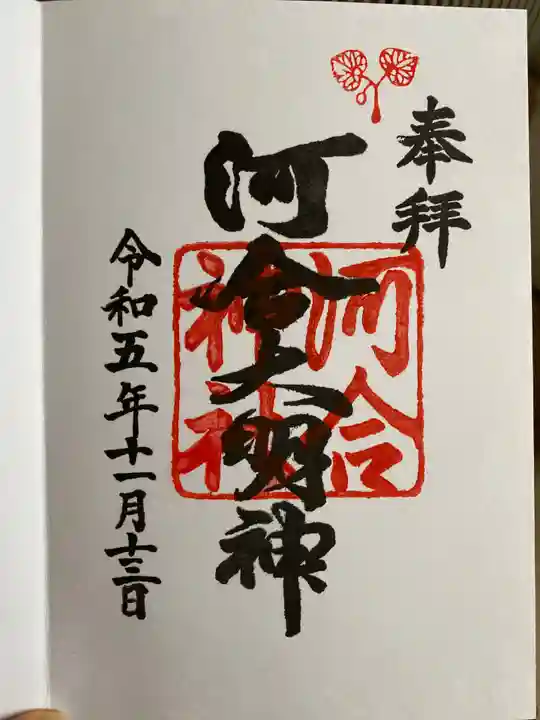 奉拝
河合大明神
河合
神社
令和五年十一月十三日